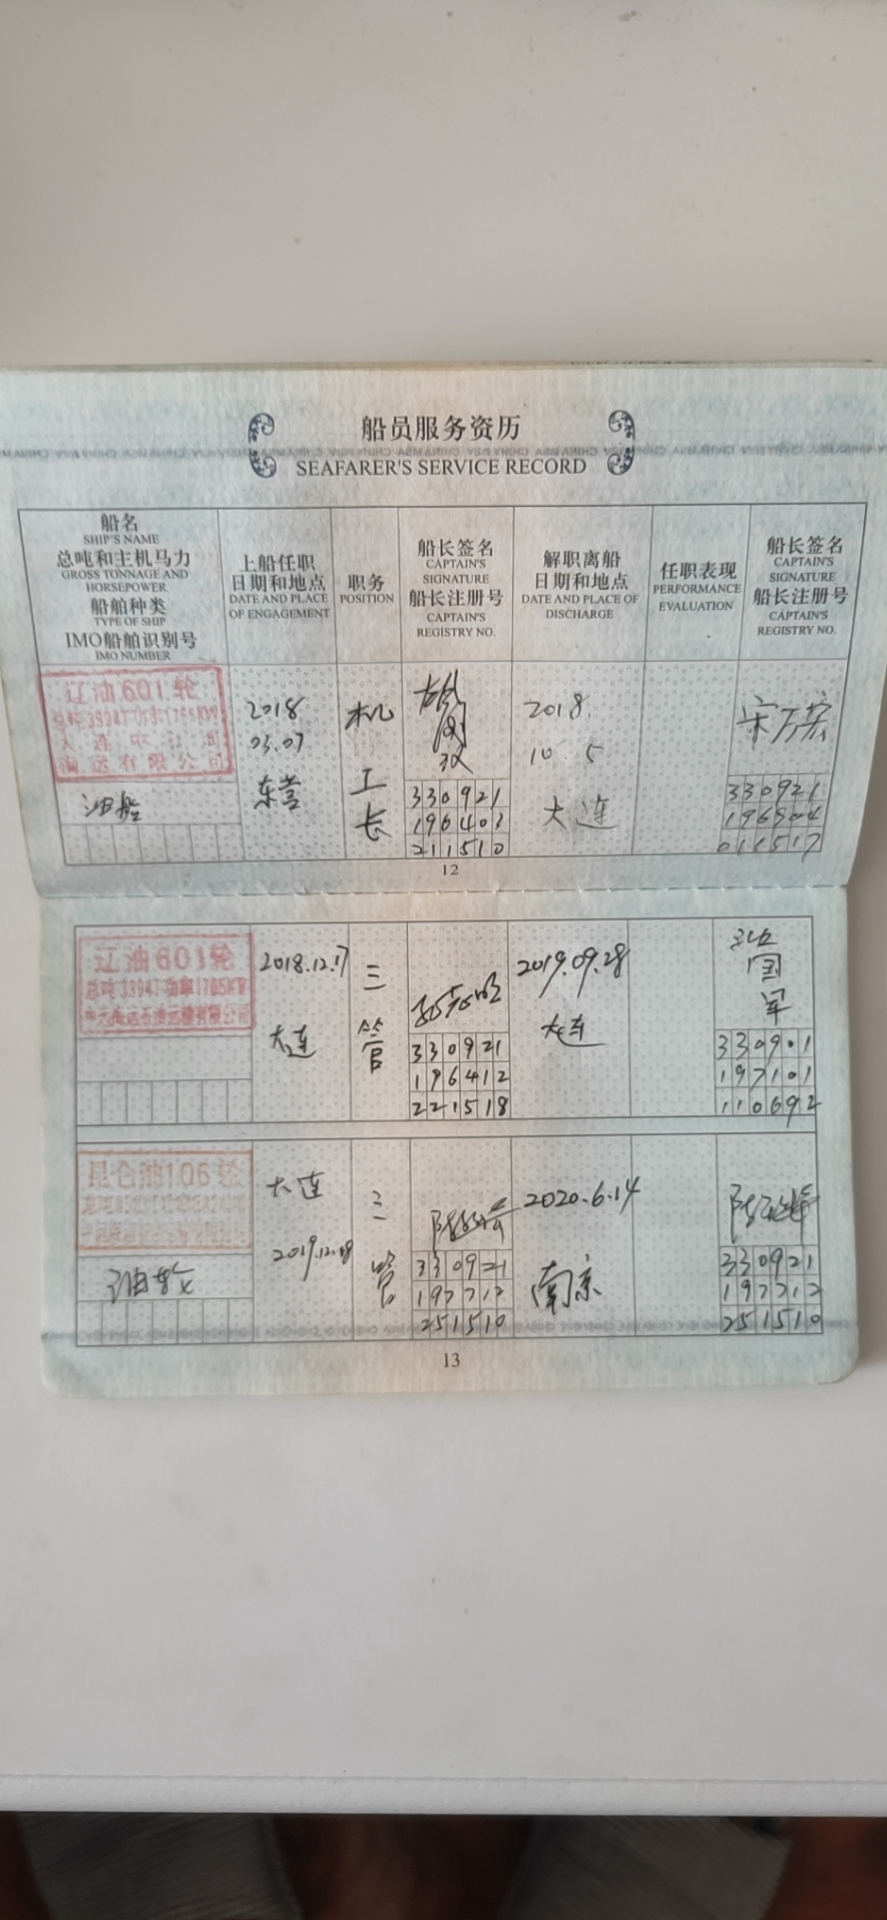 船员服务资历
SEAFARER'S SERVICE RECORD
船名
SHIP'S NAME
总吨和主机马力
GROSS TONNAGE AND
HORSEPOWER
船舶种类
TYPE OF SHIP
IMO船舶识别号
IMO NUMBER
上船任职
日期和地点
DATE AND PLACE
OF ENGAGEMENT
职务
POSITION
船长签名
CAPTAIN'S
SIGNATURE
船长注册号
CAPTAIN'S
REGISTRY NO.
解职离船
日期和地点
DATE AND PLACE OF
DISCHARGE
任职表现
PERFORMANCE
EVALUATION
船长签名
CAPTAIN'S
SIGNATURE
船长注册号
CAPTAIN'S
REGISTRY NO.
辽油601轮
海运有限公司
油船
2018
03.07
东营
机
工
长
330921
196403
211510
2018.
10 5
大连
330921
196504
011517
12
辽油601轮
2018.12.17
大连
三
管
330921
196412
221518
2019.09.28
大连
国
军
330901
197101
110692
昆仑油106轮
大连
2019.12.18
三
管
330921
251510
2020.6.14
南京
330921
251510
13